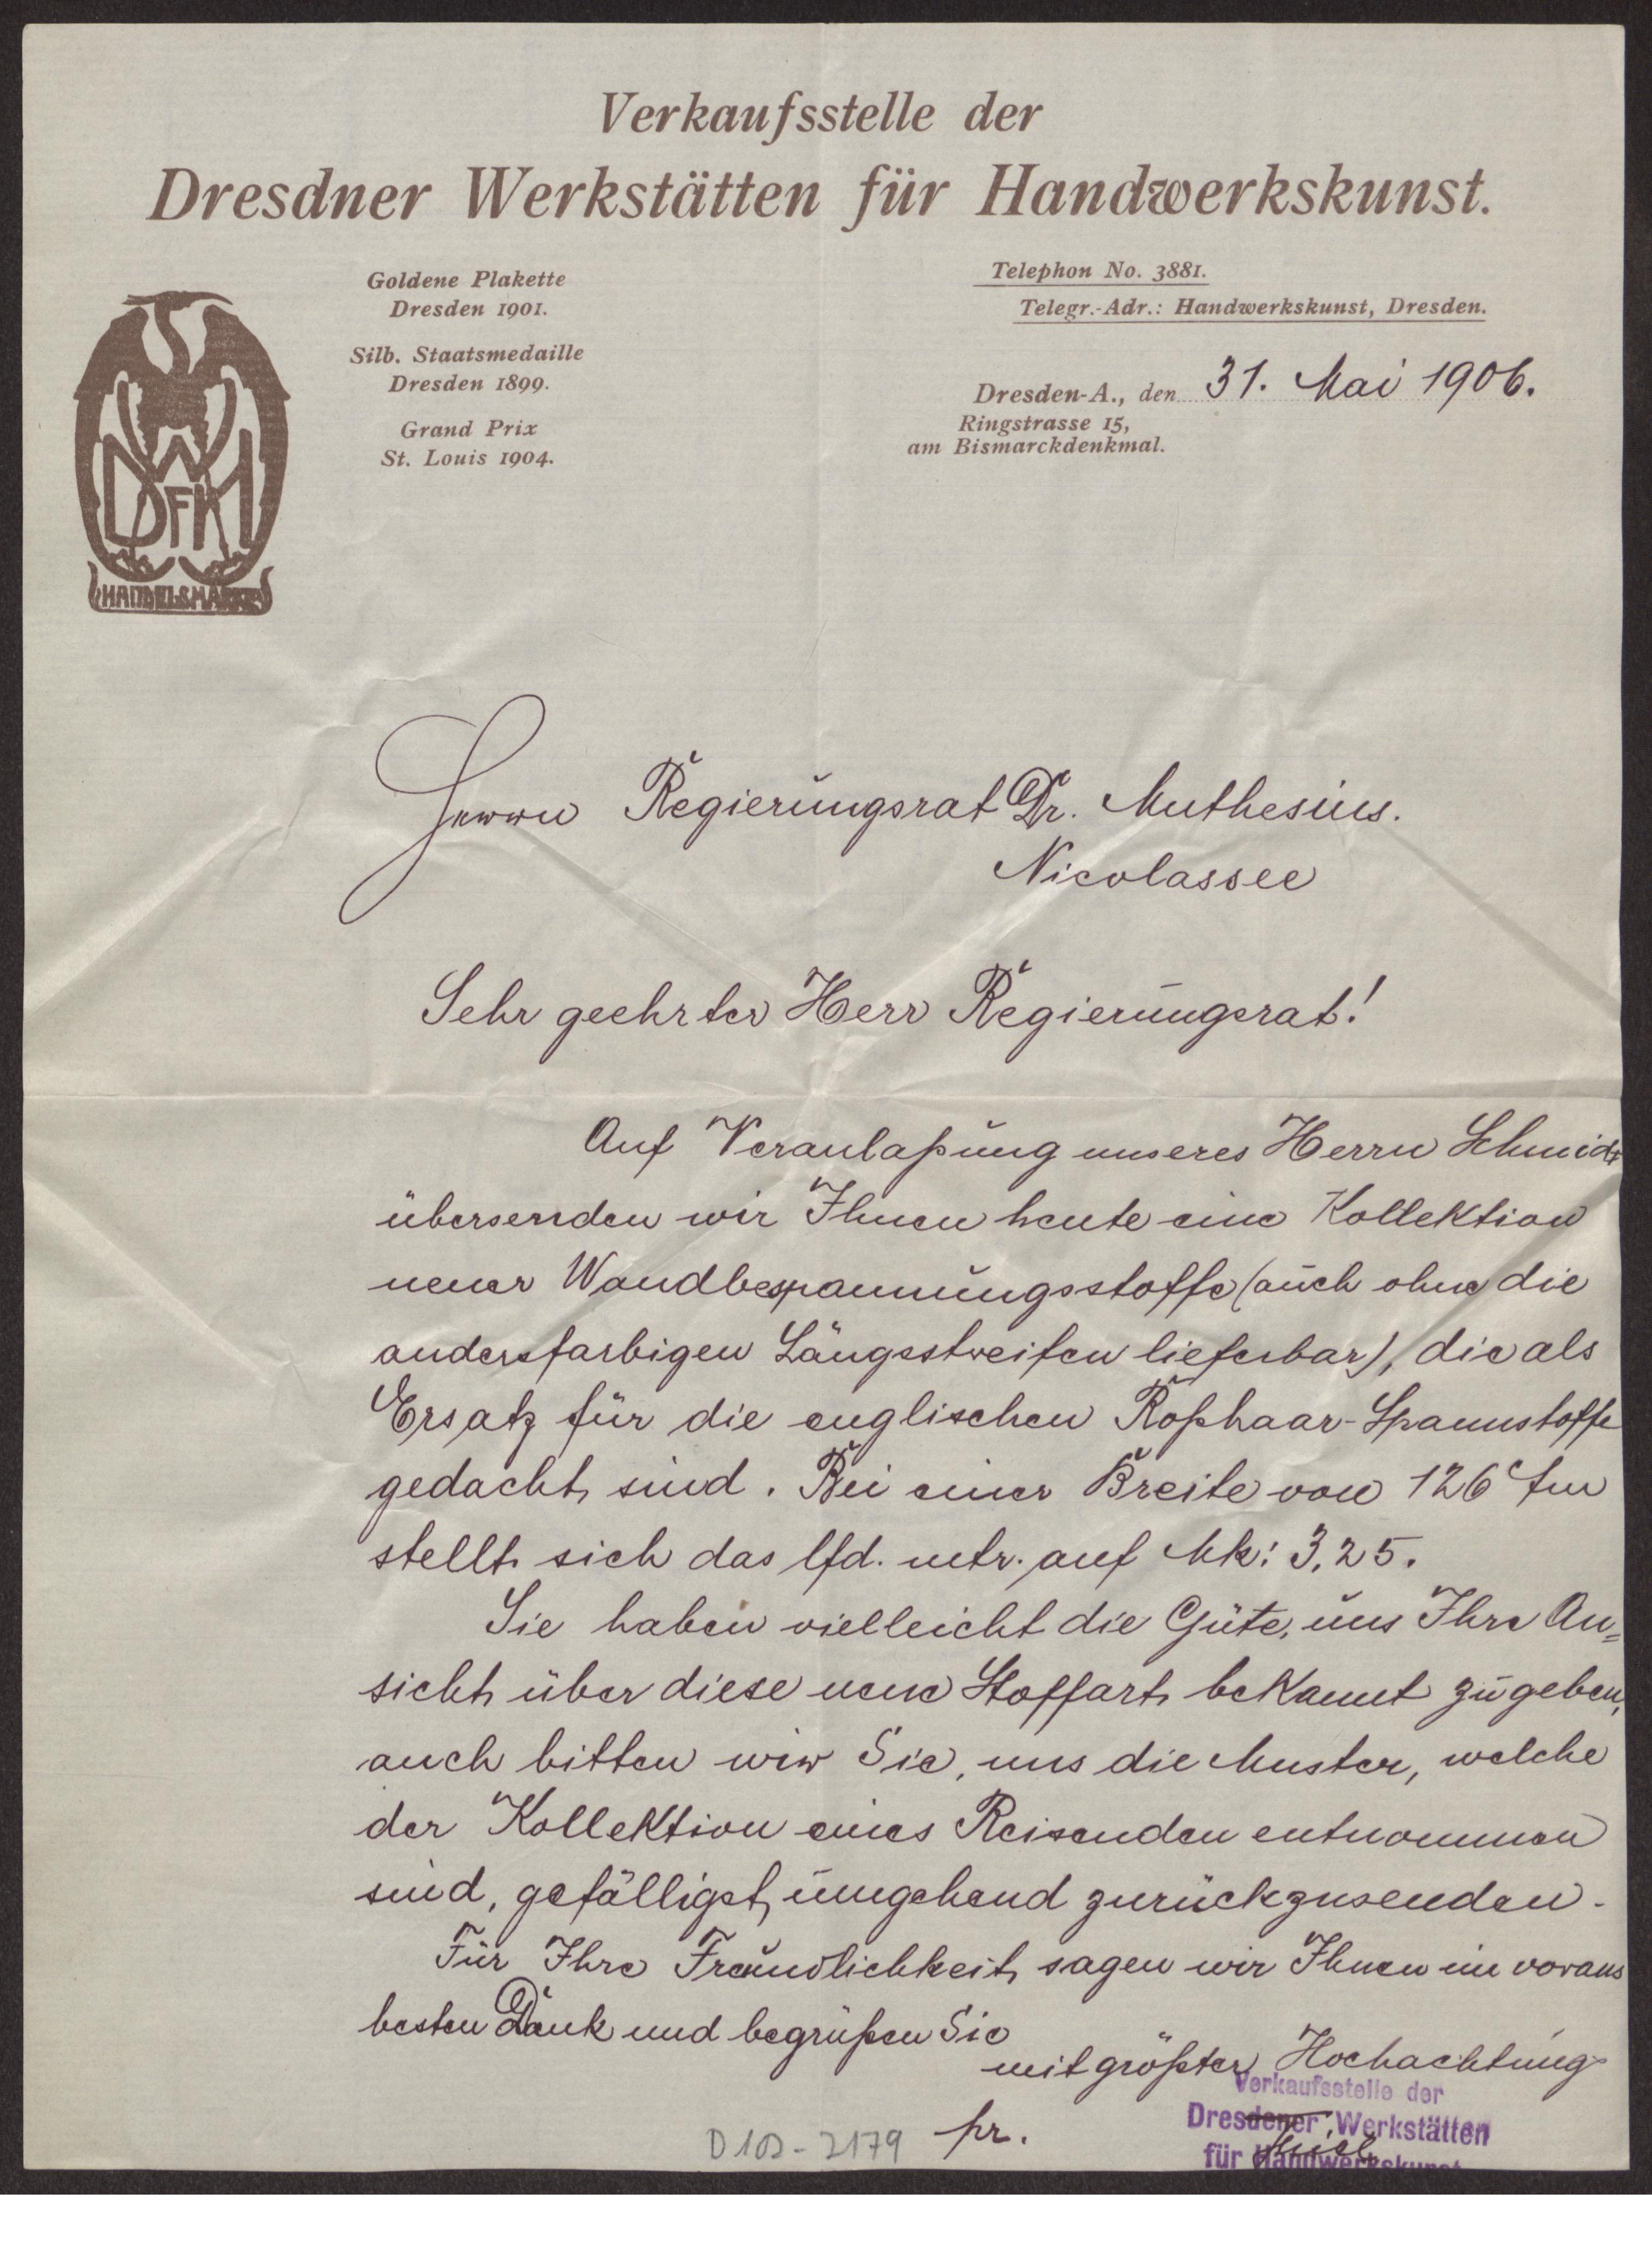 Verkaufsstelle der
Dresdner Werkstätten für Handwerkskunst.
Goldene Plakette
Dresden 1901.
Silb. Staatsmedaille
Dresden 1899.
Grand Prix
St. Louis 1904.
Telephon No. 3881.
Telegr.-Adr.: Handwerkskunst, Dresden.
Dresden-A., den 31. Mai 1906.
Ringstrasse 15,
am Bismarckdenkmal.
DWFHK
HANDELSMARKE
Herrn Regierungsrat Dr. Muthesius.
Nicolassee
Sehr geehrter Herr Regierungsrat!
Auf Veranlaßung unseres Herrn Schmidt
übersenden wir Ihnen heute eine Kollektion
neuer Wandbespannungsstoffe (auch ohne die
andersfarbigen Längsstreifen lieferbar), die als
Ersatz für die englischen Roßhaar-Spannstoffe
gedacht sind. Bei einer Breite von 126 ctm
stellt sich das lfd. mtr. auf Mk: 3,25.
Sie haben vielleicht die Güte, uns Ihre An=
sicht über diese neue Stoffart bekannt zu geben,
auch bitten wir Sie, uns die Muster, welche
der Kollektion eines Reisenden entnommen
sind, gefälligst umgehend zurückzusenden.
Für Ihre Freundlichkeit sagen wir Ihnen im voraus
besten Dank und begrüßen Sie
mit größter Hochachtung
Verkaufsstelle der
Dresdener Werkstätten
für Handwerkskunst
pr.
D 102-2179